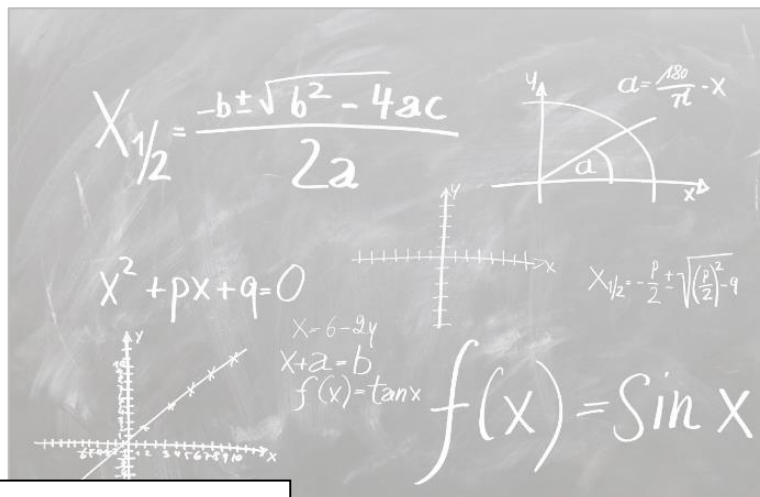 X₁/₂ = (-b ± √(b² - 4ac)) / 2a
y
a = 180/π · x
a
x
y
x
x² + px + q = 0
X₁/₂ = -p/2 ± √((p/2)² - q)
x = 6 - 2y
x + a = b
f(x) = tan x
y
x
f(x) = Sin x